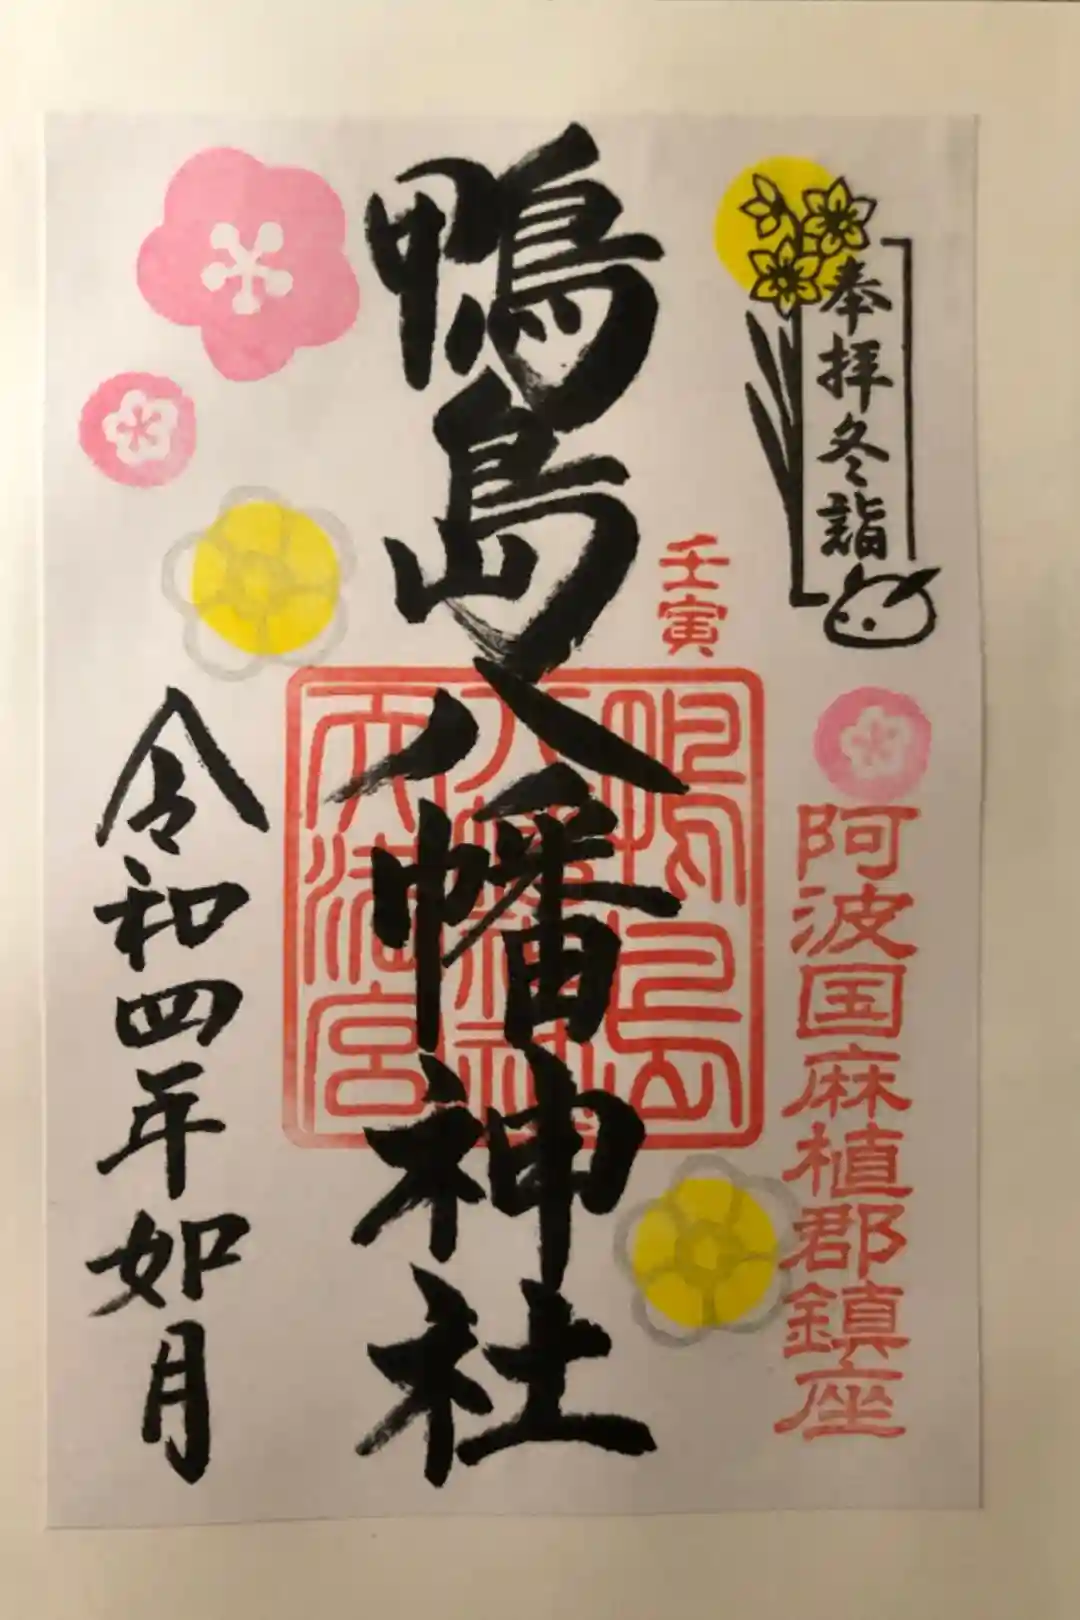 奉拝冬詣
阿波国麻植郡鎮座
壬寅
鴨島八幡神社
鴨島
八幡神社
天満宮
令和四年如月